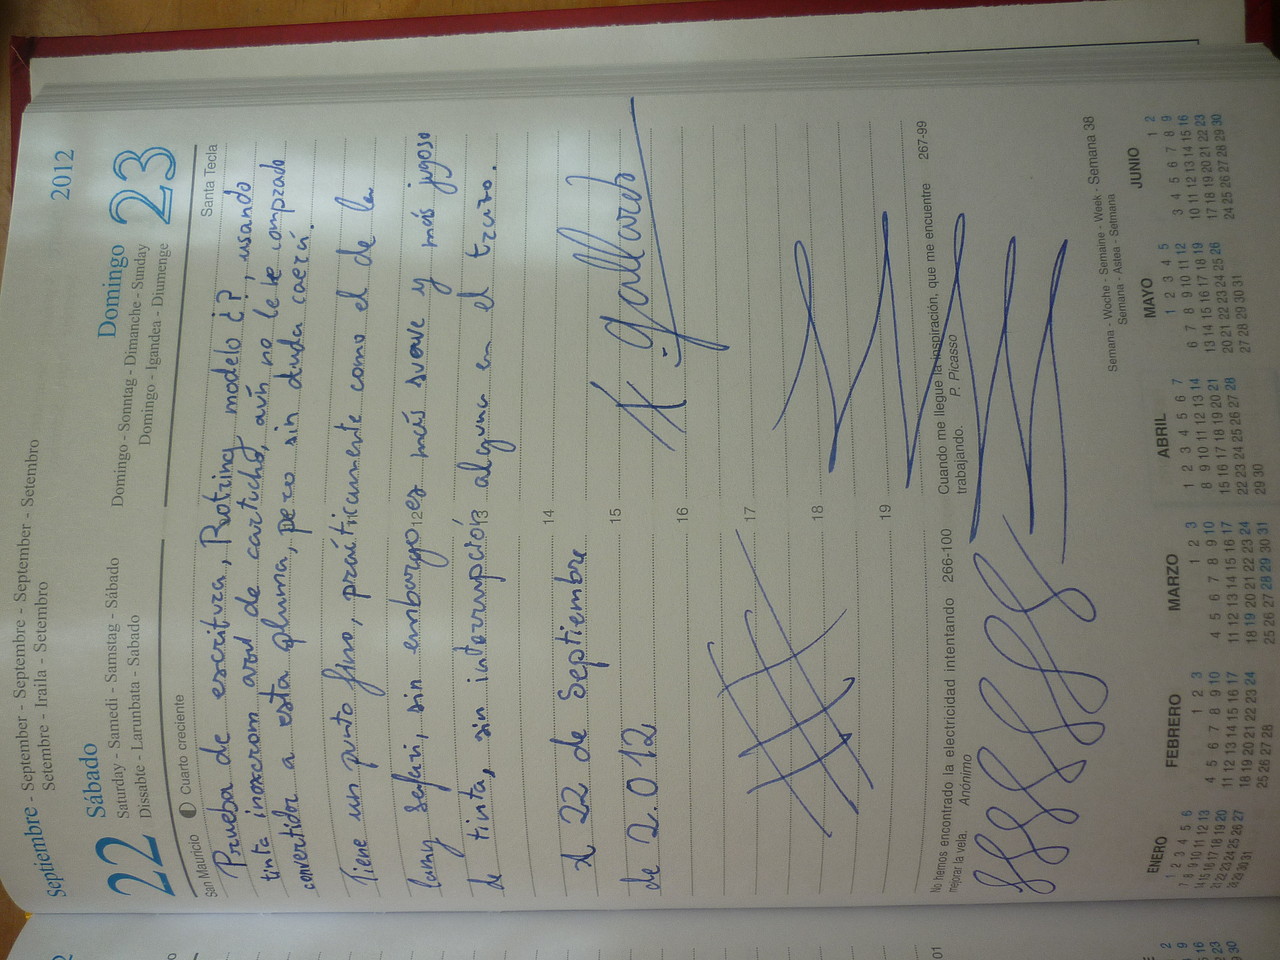 Septiembre - September - Septembre - September - Setembro
Setembre - Iraila - Setembro
2012
22 Sábado
Saturday - Samedi - Samstag - Sábado
Dissabte - Larunbata - Sabado
Domingo 23
Domingo - Sonntag - Dimanche - Sunday
Domingo - Igandea - Diumenge
San Mauricio Cuarto creciente
Santa Tecla
Prueba de escritura, Rotring modelo ¿?, usando
tinta inoxcrom azul de cartucho, aún no le he comprado
convertidor a esta pluma, pero sin duda caerá.
Tiene un punto fino, prácticamente como el de la
lamy Safari, sin embargo es más suave y más jugoso
12
de tinta, sin interrupción alguna en el trazo.
13
14
a 22 de Septiembre
15
de 2.012
Gallardo
16
17
18
19
No hemos encontrado la electricidad intentando
mejorar la vela. Anónimo
266-100
Cuando me llegue la inspiración, que me encuentre
trabajando. P. Picasso
267-99
Semana - Woche - Semaine - Week - Semana 38
Semana - Astea - Setmana
ENERO
1 2 3 4 5 6
7 8 9 10 11 12 13
14 15 16 17 18 19 20
21 22 23 24 25 26 27
28 29 30 31
FEBRERO
1 2 3
4 5 6 7 8 9 10
11 12 13 14 15 16 17
18 19 20 21 22 23 24
25 26 27 28
MARZO
1 2 3
4 5 6 7 8 9 10
11 12 13 14 15 16 17
18 19 20 21 22 23 24
25 26 27 28 29 30 31
ABRIL
1 2 3 4 5 6 7
8 9 10 11 12 13 14
15 16 17 18 19 20 21
22 23 24 25 26 27 28
29 30
MAYO
1 2 3 4 5
6 7 8 9 10 11 12
13 14 15 16 17 18 19
20 21 22 23 24 25 26
27 28 29 30 31
JUNIO
1 2
3 4 5 6 7 8 9
10 11 12 13 14 15 16
17 18 19 20 21 22 23
24 25 26 27 28 29 30